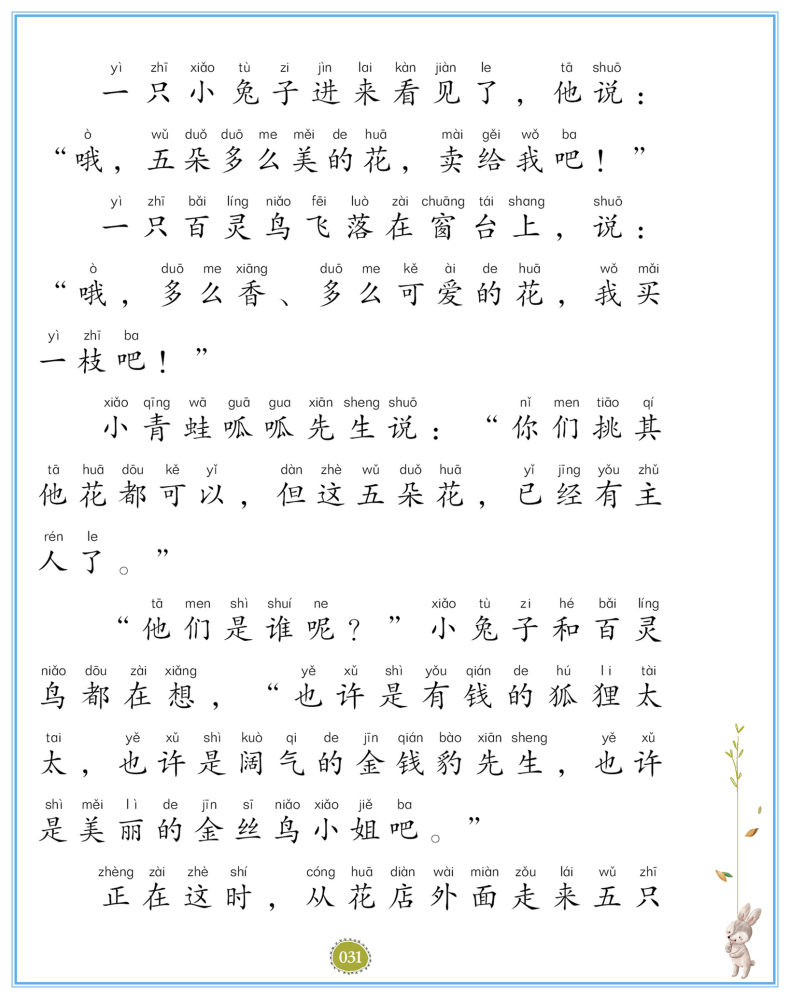 yì zhī xiǎo tù zi jìn lai kàn jiàn le tā shuō
一只小兔子进来看见了，他说：
ò wǔ duǒ duō me měi de huā mài gěi wǒ ba
“哦，五朵多么美的花，卖给我吧！”
yì zhī bǎi líng niǎo fēi luò zài chuāng tái shang shuō
一只百灵鸟飞落在窗台上，说：
ò duō me xiāng duō me kě ài de huā wǒ mǎi
“哦，多么香、多么可爱的花，我买
yì zhī ba
一枝吧！”
xiǎo qīng wā guā gua xiān sheng shuō nǐ men tiāo qí
小青蛙呱呱先生说：“你们挑其
tā huā dōu kě yǐ dàn zhè wǔ duǒ huā yǐ jīng yǒu zhǔ
他花都可以，但这五朵花，已经有主
rén le
人了。”
tā men shì shuí ne xiǎo tù zi hé bǎi líng
“他们是谁呢？”小兔子和百灵
niǎo dōu zài xiǎng yě xǔ shì yǒu qián de hú li tài
鸟都在想，“也许是有钱的狐狸太
tai yě xǔ shì kuò qi de jīn qián bào xiān sheng yě xǔ
太，也许是阔气的金钱豹先生，也许
shì měi lì de jīn sī niǎo xiǎo jiě ba
是美丽的金丝鸟小姐吧。”
zhèng zài zhè shí cóng huā diàn wài miàn zǒu lái wǔ zhī
正在这时，从花店外面走来五只
031